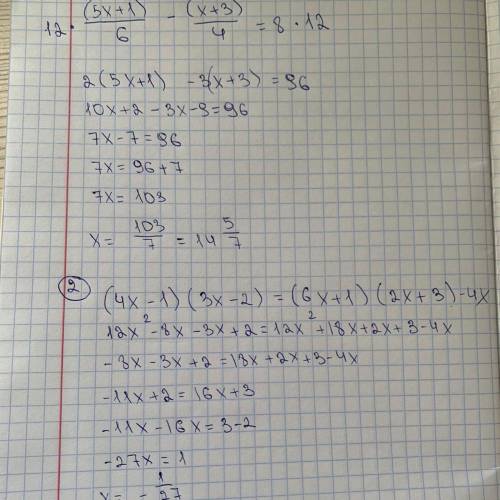 12 · (5x+1)/6 - (x+3)/4 = 8 · 12
2(5x+1) - 3(x+3) = 96
10x+2-3x-9=96
7x-7=96
7x=96+7
7x=103
x= 103/7 = 14 5/7
2
(4x-1)(3x-2)=(6x+1)(2x+3)-4x
12x²-8x-3x+2=12x²+18x+2x+3-4x
-8x-3x+2=18x+2x+3-4x
-11x+2=16x+3
-11x-16x=3-2
-27x=1
x= -1/27